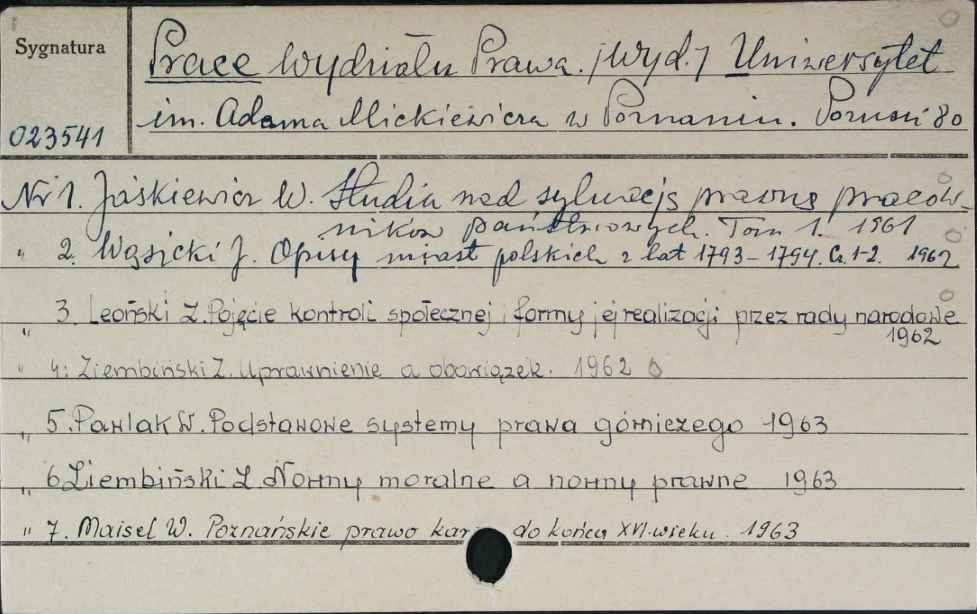 Sygnatura
023541
Prace Wydziału Prawa. /Wyd./ Uniwersytet
im. Adama Mickiewicza w Poznaniu. Poznań 80
Nr 1. Jaśkiewicz W. Studia nad sytuacją prawną pracow-
ników państwowych. Tom 1. 1961
" 2. Wąsicki J. Opisy miast polskich z lat 1793-1794. Cz. 1-2. 1962
" 3. Leoński Z. Pojęcie kontroli społecznej i formy jej realizacji przez rady narodowe
1962
" 4: Ziembiński Z. Uprawnienie a obowiązek. 1962
" 5. Pawlak W. Podstawowe systemy prawa górniczego 1963
" 6 Ziembiński Z Normy moralne a normy prawne 1963
" 7. Maisel W. Poznańskie prawo do końca XVI. wieku. 1963